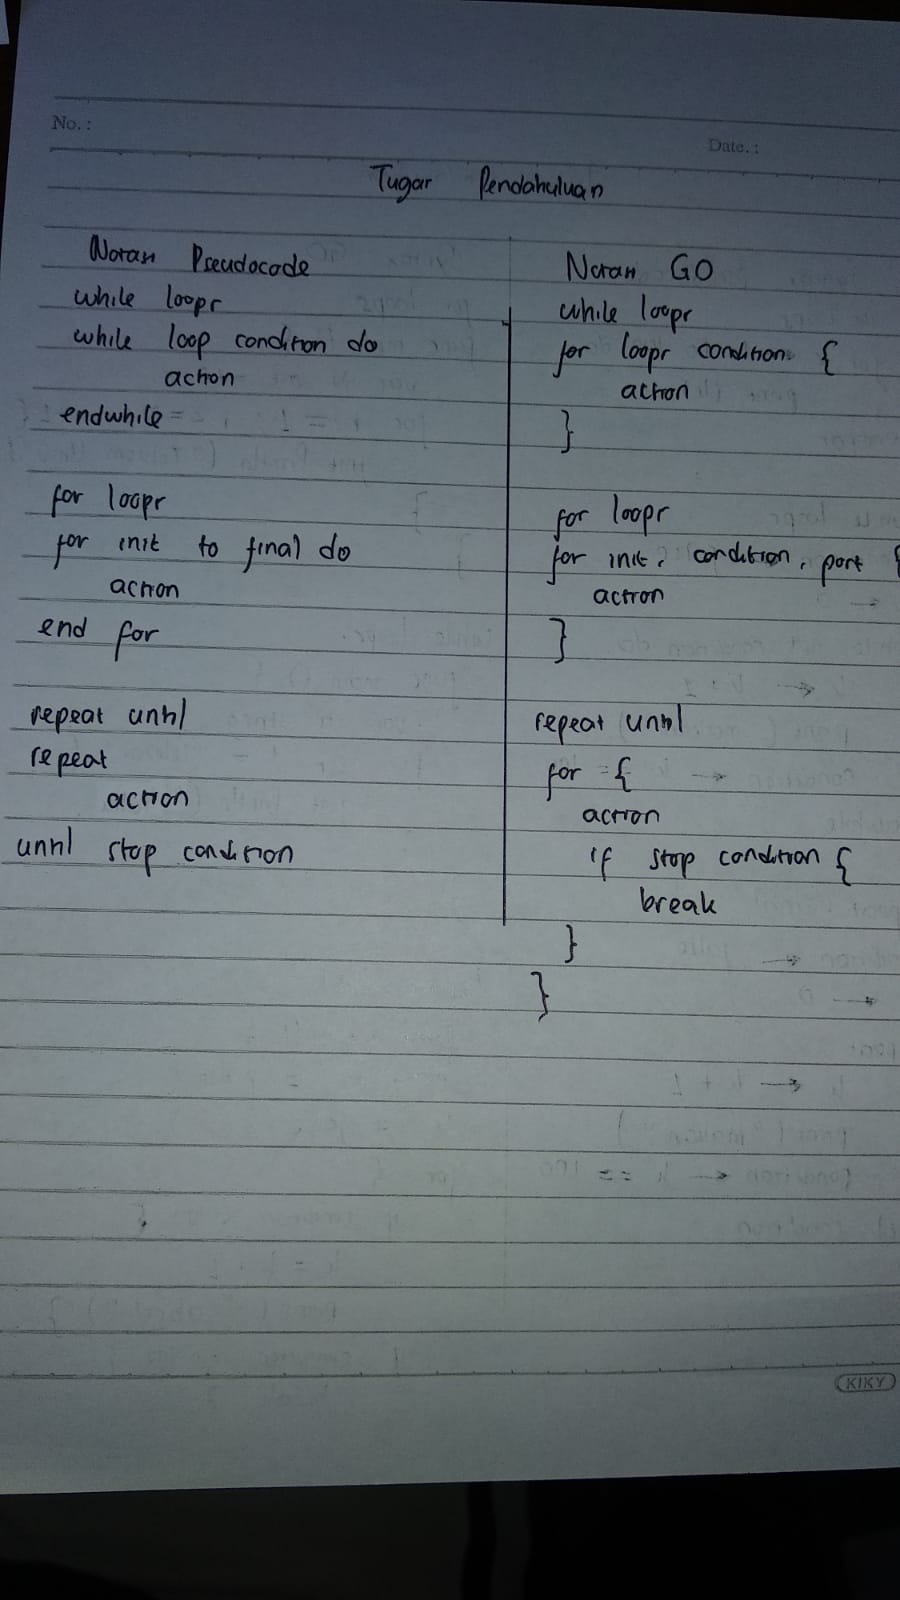 No. :
Date. :
Tugas Pendahuluan
Notasi Pseudocode
while loops
while loop condition do
action
endwhile
for loops
for init to final do
action
end for
repeat until
repeat
action
until stop condition
Notasi GO
while loops
for loops condition {
action
}
for loops
for init; condition, post {
action
}
repeat until
for {
action
if stop condition {
break
}
}
KIKY